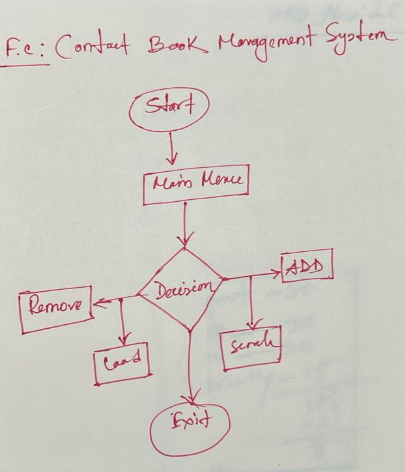 F.c: Contact Book Management System
Start
Main Menue
Decision
ADD
Remove
Load
Serach
Exist